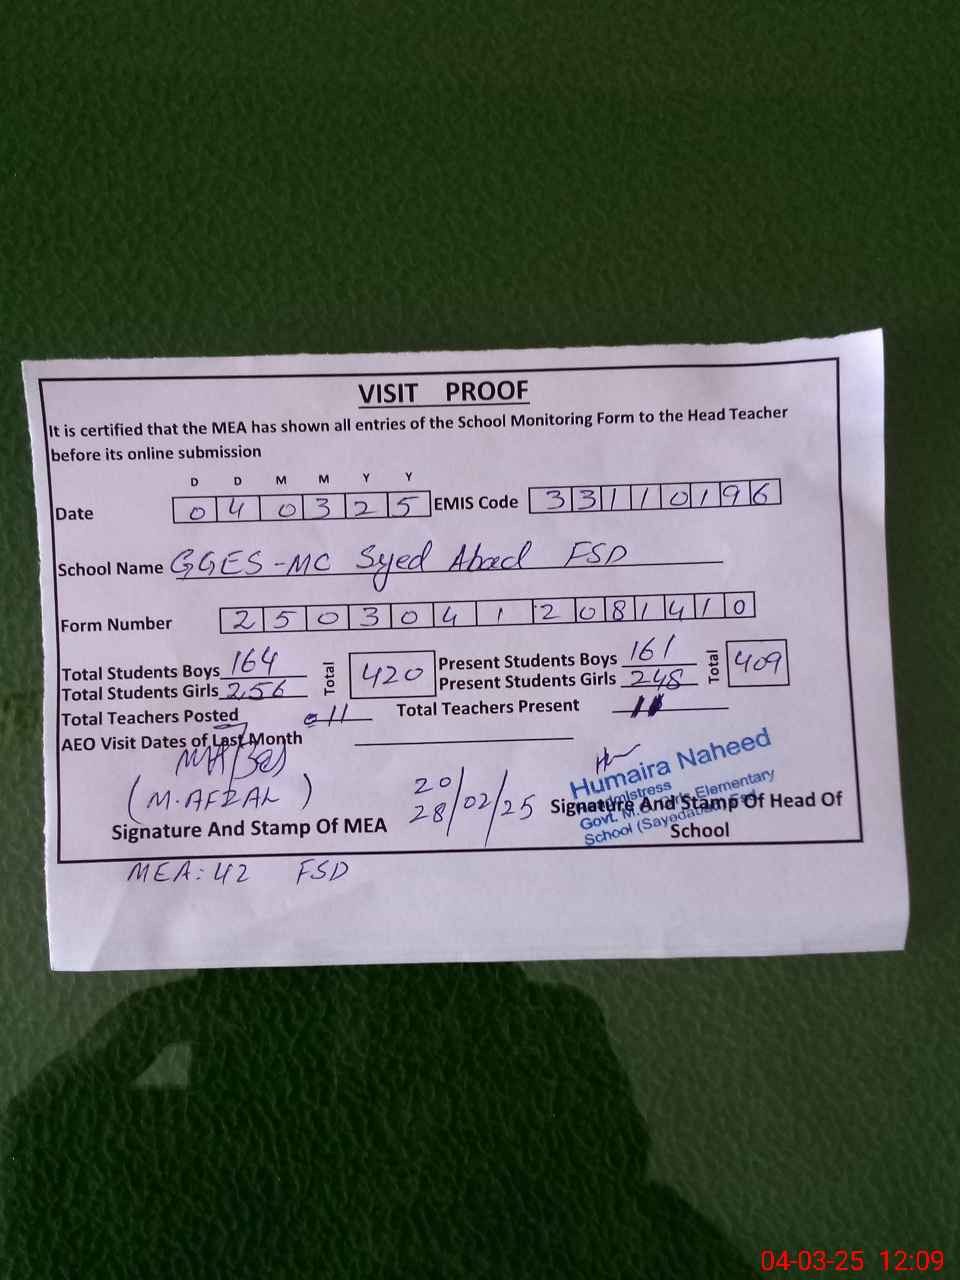 VISIT PROOF
It is certified that the MEA has shown all entries of the School Monitoring Form to the Head Teacher
before its online submission
D D M M Y Y
Date 0 4 0 3 2 5 EMIS Code 3 3 1 1 0 1 9 6
School Name GGES-MC Syed Abad FSD
Form Number 2 5 0 3 0 4 1 2 0 8 1 4 1 0
Total Students Boys 164 Total 420 Present Students Boys 161 Total 409
Total Students Girls 256 Present Students Girls 248
Total Teachers Posted 11 Total Teachers Present 11
AEO Visit Dates of Last Month
(M.AFZAL)
20
28/02/25
Humaira Naheed
Govt. M. Elementary
School (Sayedabad
Signature And Stamp Of MEA
Signature And Stamp Of Head Of
School
MEA: 42 FSD
04-03-25 12:09